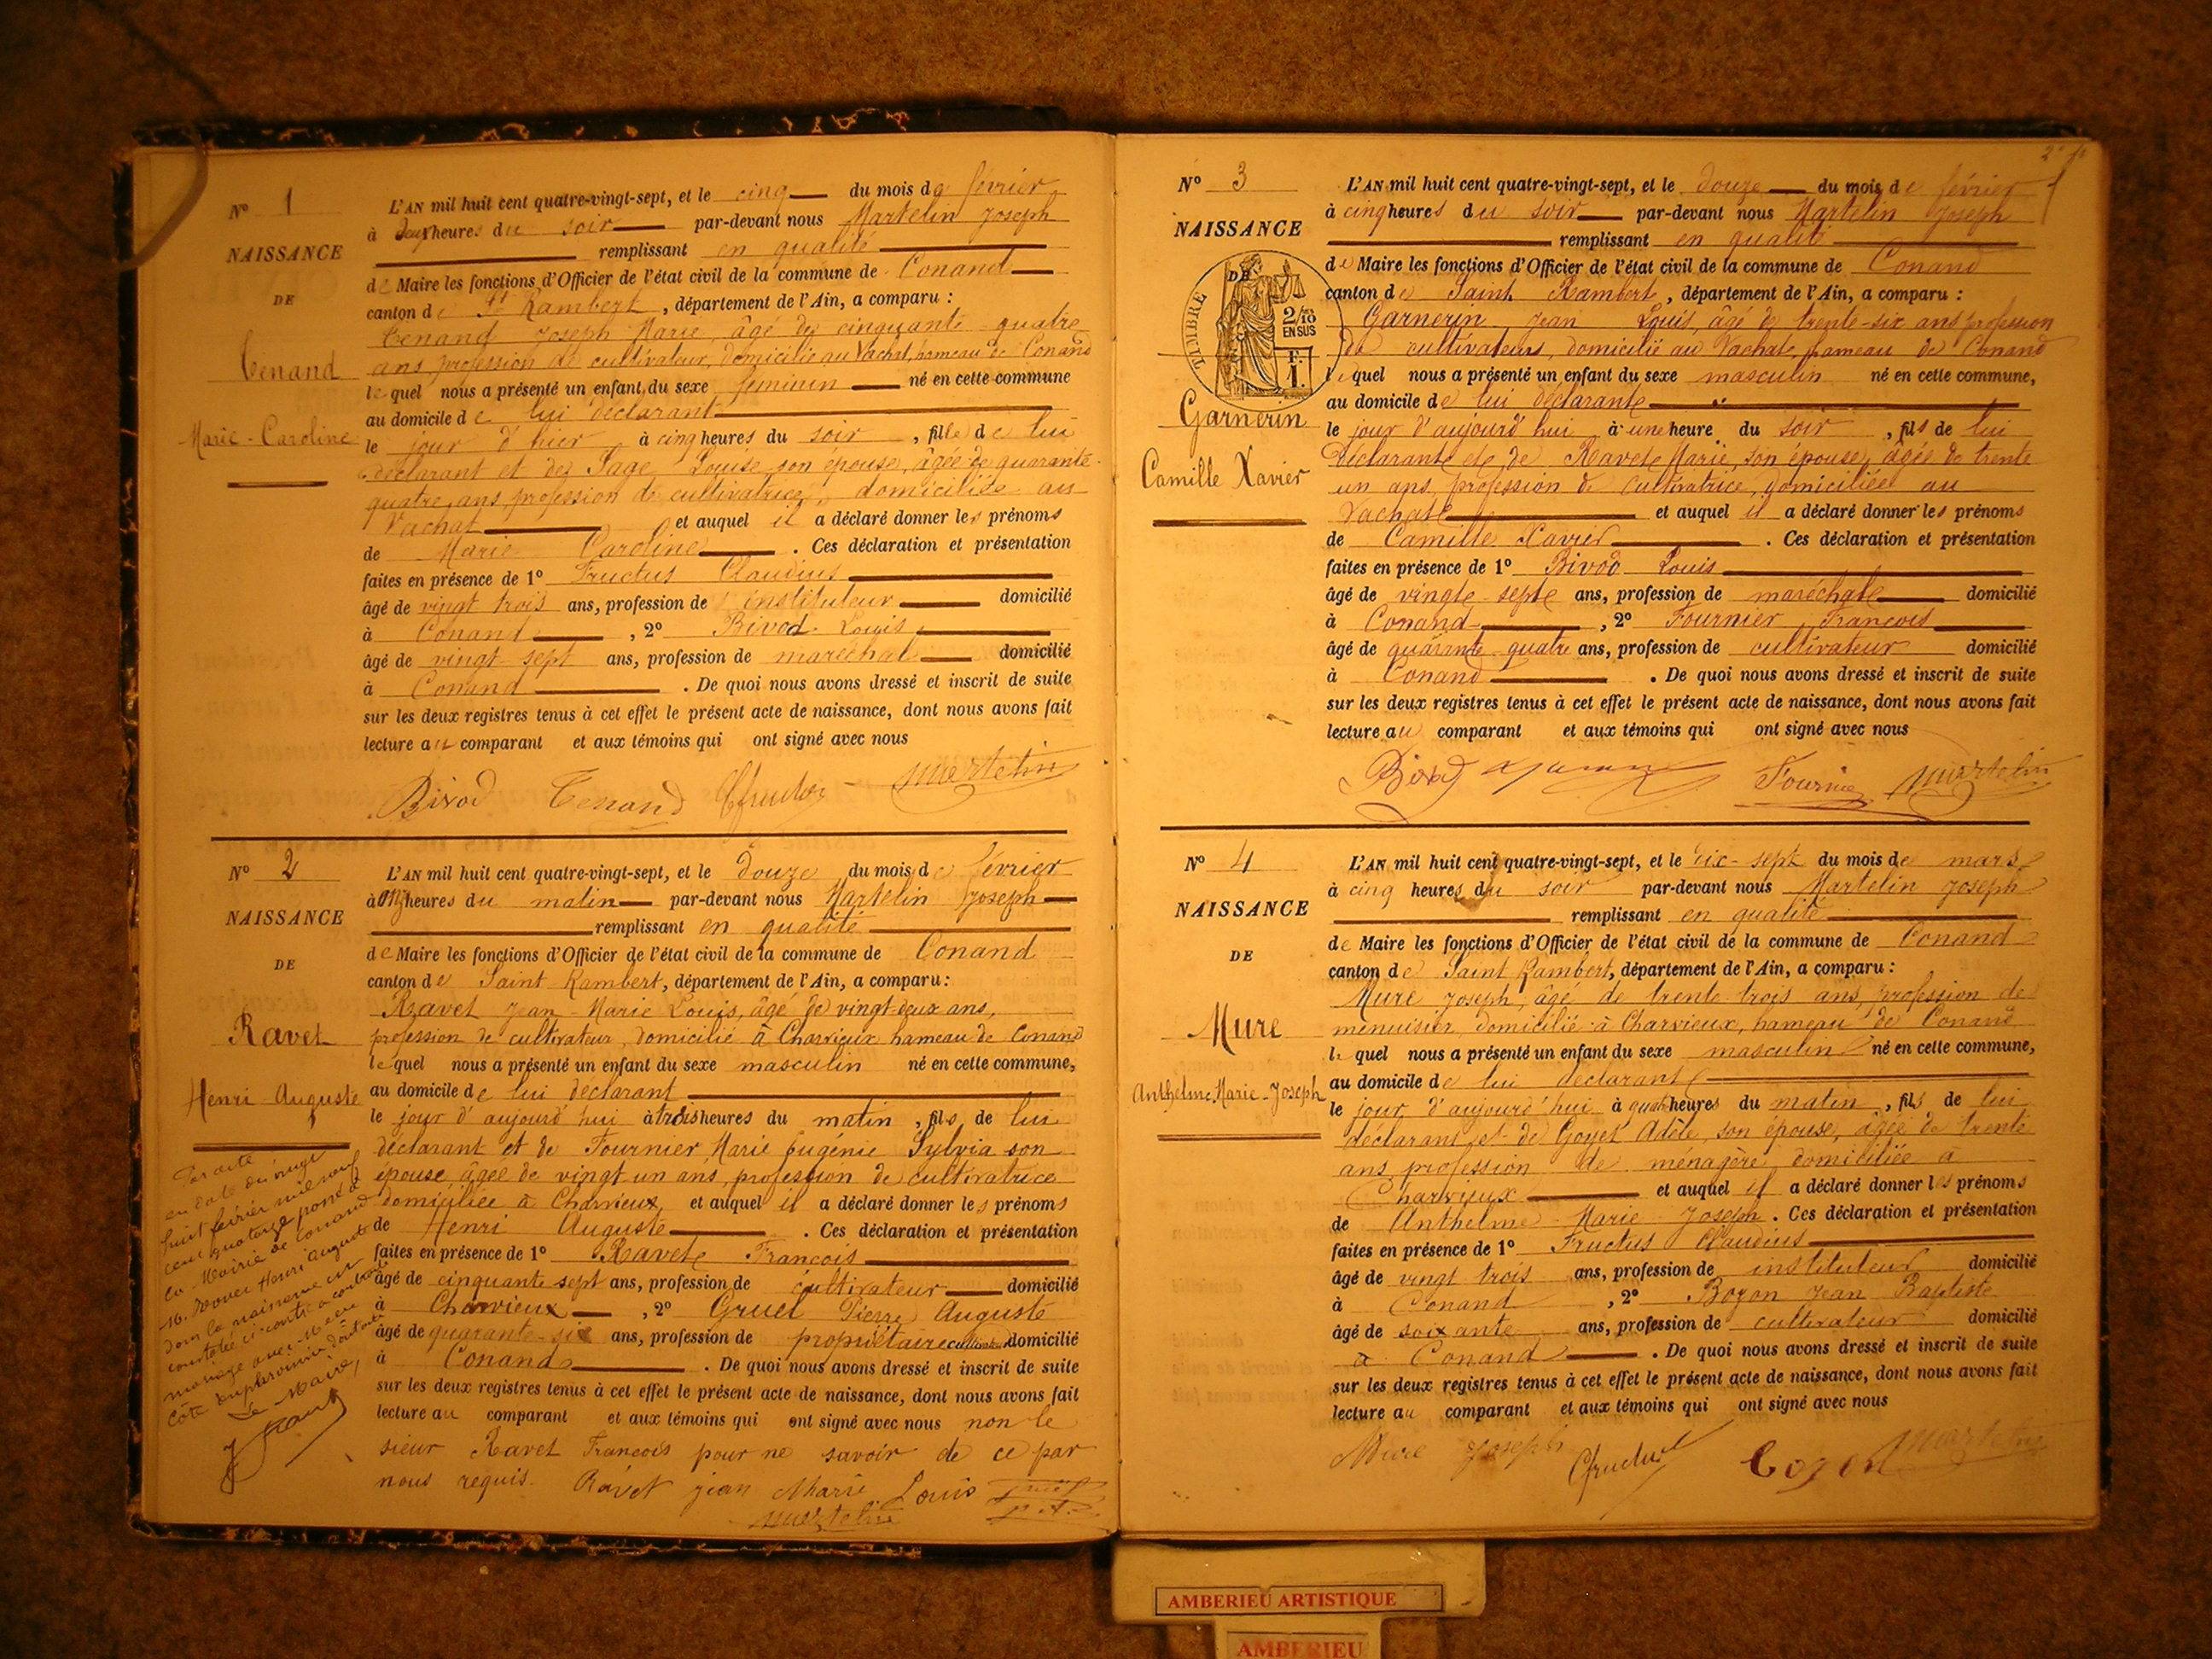 N° 1
NAISSANCE
DE
Tenand
Marie-Caroline
L'AN mil huit cent quatre-vingt-sept, et le cinq du mois de février
à deux heures du soir par-devant nous Martelin Joseph
remplissant en qualité
de Maire les fonctions d'Officier de l'état civil de la commune de Conand
canton de St Rambert, département de l'Ain, a comparu :
Tenand Joseph Marie, âgé de cinquante quatre
ans, profession de cultivateur, domicilié au Vachat, hameau de Conand
lequel nous a présenté un enfant du sexe féminin né en cette commune
au domicile de lui déclarant
le jour d'hier à cinq heures du soir, fille de lui
déclarant et de Sage Louise son épouse, âgée de quarante
quatre ans, profession de cultivatrice, domiciliée au
Vachat et auquel il a déclaré donner les prénoms
de Marie Caroline. Ces déclaration et présentation
faites en présence de 1° Fructus Claudius
âgé de vingt trois ans, profession de instituteur domicilié
à Conand, 2° Bivod Louis
âgé de vingt-sept ans, profession de maréchal domicilié
à Conand. De quoi nous avons dressé et inscrit de suite
sur les deux registres tenus à cet effet le présent acte de naissance, dont nous avons fait
lecture au comparant et aux témoins qui ont signé avec nous
Bivod Tenand CFructus Martelin
N° 2
NAISSANCE
DE
Ravet
Henri Auguste
L'AN mil huit cent quatre-vingt-sept, et le douze du mois de février
à onze heures du matin par-devant nous Martelin Joseph
remplissant en qualité
de Maire les fonctions d'Officier de l'état civil de la commune de Conand
canton de Saint Rambert, département de l'Ain, a comparu :
Ravet Jean-Marie Louis, âgé de vingt-deux ans,
profession de cultivateur, domicilié à Charvieux hameau de Conand
lequel nous a présenté un enfant du sexe masculin né en cette commune,
au domicile de lui déclarant
le jour d'aujourd'hui à trois heures du matin, fils de lui
déclarant et de Fournier Marie Eugénie Sylvia son
épouse âgée de vingt un ans, profession de cultivatrice
domiciliée à Charvieux et auquel il a déclaré donner les prénoms
de Henri Auguste. Ces déclaration et présentation
faites en présence de 1° Ravet François
âgé de cinquante sept ans, profession de cultivateur domicilié
à Charvieux, 2° Gruel Pierre Auguste
âgé de quarante-six ans, profession de propriétaire cultivateur domicilié
à Conand. De quoi nous avons dressé et inscrit de suite
sur les deux registres tenus à cet effet le présent acte de naissance, dont nous avons fait
lecture au comparant et aux témoins qui ont signé avec nous non le
sieur Ravet François pour ne savoir de ce par
nous requis. Ravet jean Marie Louis
Martelin
Par acte
en date du vingt
huit février mil neuf
cent quatorze passé à
la Mairie de Conand
M. Ravet Henri Auguste
dont la naissance est
constatée ci-contre a contracté
mariage avec
Le Maire,
2e f
N° 3
NAISSANCE
DE
TIMBRE
2/10
EN SUS
Garnerin
Camille Xavier
L'AN mil huit cent quatre-vingt-sept, et le douze du mois de février
à cinq heures du soir par-devant nous Martelin Joseph
remplissant en qualité
de Maire les fonctions d'Officier de l'état civil de la commune de Conand
canton de Saint Rambert, département de l'Ain, a comparu :
Garnerin Jean Louis, âgé de trente-six ans profession
de cultivateur, domicilié au Vachat, hameau de Conand
lequel nous a présenté un enfant du sexe masculin né en cette commune,
au domicile de lui déclarant
le jour d'aujourd'hui à une heure du soir, fils de lui
déclarant et de Ravet Marie, son épouse, âgée de trente
un ans, profession de cultivatrice, domiciliée au
Vachat et auquel il a déclaré donner les prénoms
de Camille Xavier. Ces déclaration et présentation
faites en présence de 1° Bivod Louis
âgé de vingt-sept ans, profession de maréchal domicilié
à Conand, 2° Fournier François
âgé de quarante-quatre ans, profession de cultivateur domicilié
à Conand. De quoi nous avons dressé et inscrit de suite
sur les deux registres tenus à cet effet le présent acte de naissance, dont nous avons fait
lecture au comparant et aux témoins qui ont signé avec nous
Bivod Fournier Martelin
N° 4
NAISSANCE
DE
Mure
Anthelme-Marie-Joseph
L'AN mil huit cent quatre-vingt-sept, et le dix-sept du mois de mars
à cinq heures du soir par-devant nous Martelin Joseph
remplissant en qualité
de Maire les fonctions d'Officier de l'état civil de la commune de Conand
canton de Saint Rambert, département de l'Ain, a comparu :
Mure Joseph, âgé de trente-trois ans, profession de
menuisier, domicilié à Charvieux, hameau de Conand
lequel nous a présenté un enfant du sexe masculin né en cette commune,
au domicile de lui déclarant
le jour d'aujourd'hui à quatre heures du matin, fils de lui
déclarant et de Goyet Adèle, son épouse, âgée de trente
ans profession de ménagère domiciliée à
Charvieux et auquel il a déclaré donner les prénoms
de Anthelme Marie Joseph. Ces déclaration et présentation
faites en présence de 1° Fructus Claudius
âgé de vingt trois ans, profession de instituteur domicilié
à Conand, 2° Bozon Jean Baptiste
âgé de soixante ans, profession de cultivateur domicilié
à Conand. De quoi nous avons dressé et inscrit de suite
sur les deux registres tenus à cet effet le présent acte de naissance, dont nous avons fait
lecture au comparant et aux témoins qui ont signé avec nous
Mure Joseph CFructus Bozon Martelin
AMBERIEU ARTISTIQUE
AMBERIEU